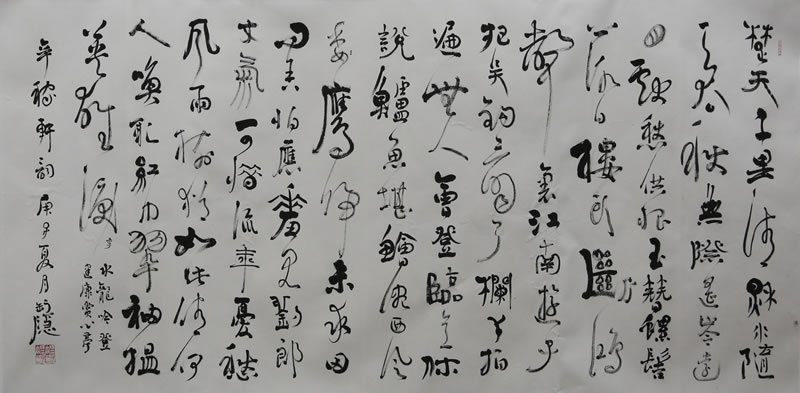 楚天千里清秋水隨
天去秋無際遥岑遠
目獻愁供恨玉簪螺髻
落日樓頭斷鴻
聲裏江南遊子
把吳鉤看了欄干拍
遍無人會登臨意休
說鱸魚堪鱠盡西風
季鷹歸未求田
問舍怕應羞見劉郎
才氣可惜流年憂愁
風雨樹猶如此倩何
人喚取紅巾翠袖揾
英雄淚
水龍吟登
建康賞心亭
辛稼軒詞庚子夏月